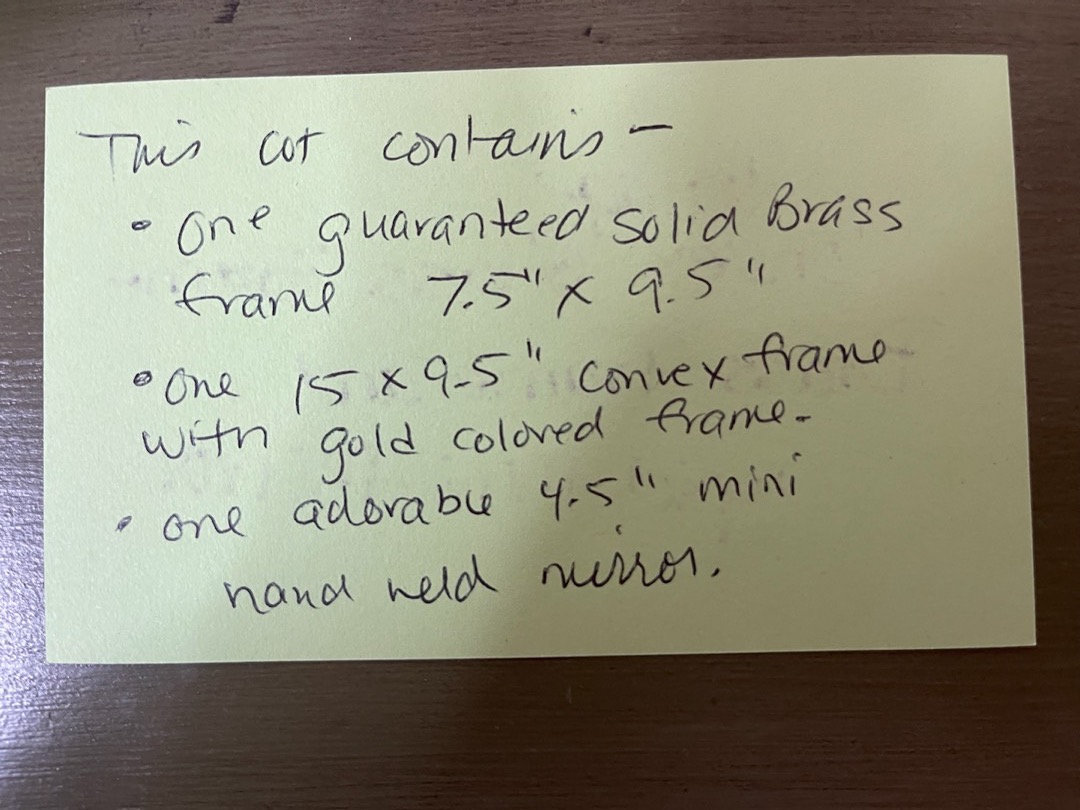 This cot contains -
• One guaranteed Solid Brass
frame 7.5" x 9.5"
• One 15 x 9.5" convex frame
with gold colored frame.
• one adorable 4.5" mini
hand held mirror.